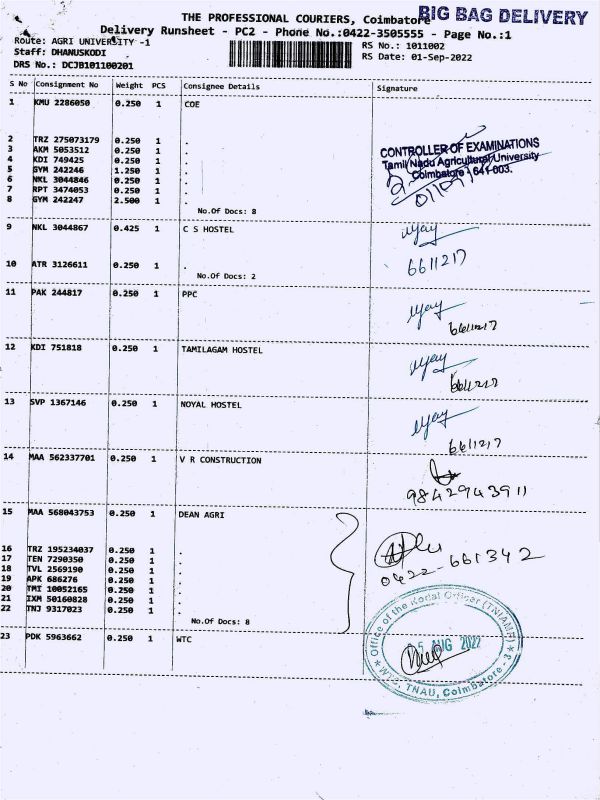 BIG BAG DELIVERY
THE PROFESSIONAL COURIERS, Coimbatore
Delivery Runsheet - PC2 - Phone No.:0422-3505555 - Page No.:1
Route: AGRI UNIVERSITY -1
RS No.: 1011002
Staff: DHANUSKODI
RS Date: 01-Sep-2022
DRS No.: DCJB101100201
S No Consignment No Weight PCS Consignee Details Signature
1 KMU 2286050 0.250 1 COE
2 TRZ 275073179 0.250 1 .
3 AKM 5053512 0.250 1 .
4 KDI 749425 0.250 1 .
5 GYM 242246 1.250 1 .
6 NKL 3044846 0.250 1 .
7 RPT 3474053 0.250 1 .
8 GYM 242247 2.500 1 .
No.Of Docs: 8
CONTROLLER OF EXAMINATIONS
Tamil Nadu Agricultural University
Coimbatore - 641 003.
9 NKL 3044867 0.425 1 C S HOSTEL
10 ATR 3126611 0.250 1 .
No.Of Docs: 2
6611217
11 PAK 244817 0.250 1 PPC
6611217
12 KDI 751818 0.250 1 TAMILAGAM HOSTEL
6611217
13 SVP 1367146 0.250 1 NOYAL HOSTEL
6611217
14 MAA 562337701 0.250 1 V R CONSTRUCTION
9842943911
15 MAA 568043753 0.250 1 DEAN AGRI
16 TRZ 195234037 0.250 1 .
17 TEN 7290350 0.250 1 .
18 TVL 2569190 0.250 1 .
19 APK 686276 0.250 1 .
20 TMI 10052165 0.250 1 .
21 IXM 50160828 0.250 1 .
22 TNJ 9317023 0.250 1 .
No.Of Docs: 8
0422-661342
23 PDK 5963662 0.250 1 WTC
Office of the Nodal Officer (TNIAMP)
AUG 2022
WTC, TNAU, Coimbatore - 3